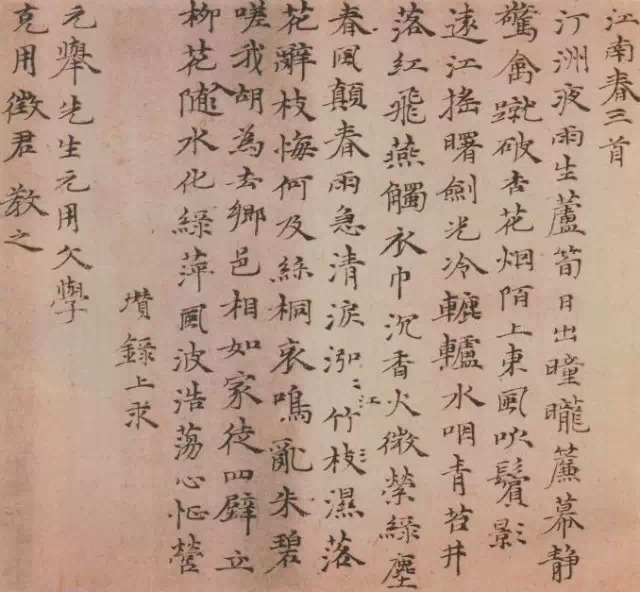 江南春三首
汀洲夜雨生蘆筍日出曈曨簾幕静
驚禽蹴破杏花烟陌上東風吹鬢影
遠江搖曙劍光冷轆轤水咽青苔井
落紅飛燕觸衣巾沉香火微縈緑塵
春風顛春雨急清淚泓〻江竹枝濕落
花辭枝悔何及絲桐哀鳴亂朱碧
嗟我胡為去鄉邑相如家徒四壁立
柳花隨水化綠萍風波浩蕩心怔營
瓚錄上求
元舉先生元用文學
克用徵君教之